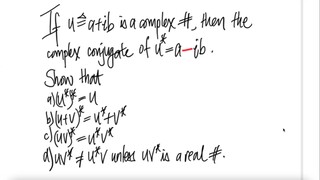 If u≜a+ib is a complex #, then the
complex conjugate of u*=a-ib.
Show that
a) (u*)*=u
b) (u+v)*=u*+v*
c) (uv)*=u*v*
d) uv*≠u*v unless uv* is a real #.